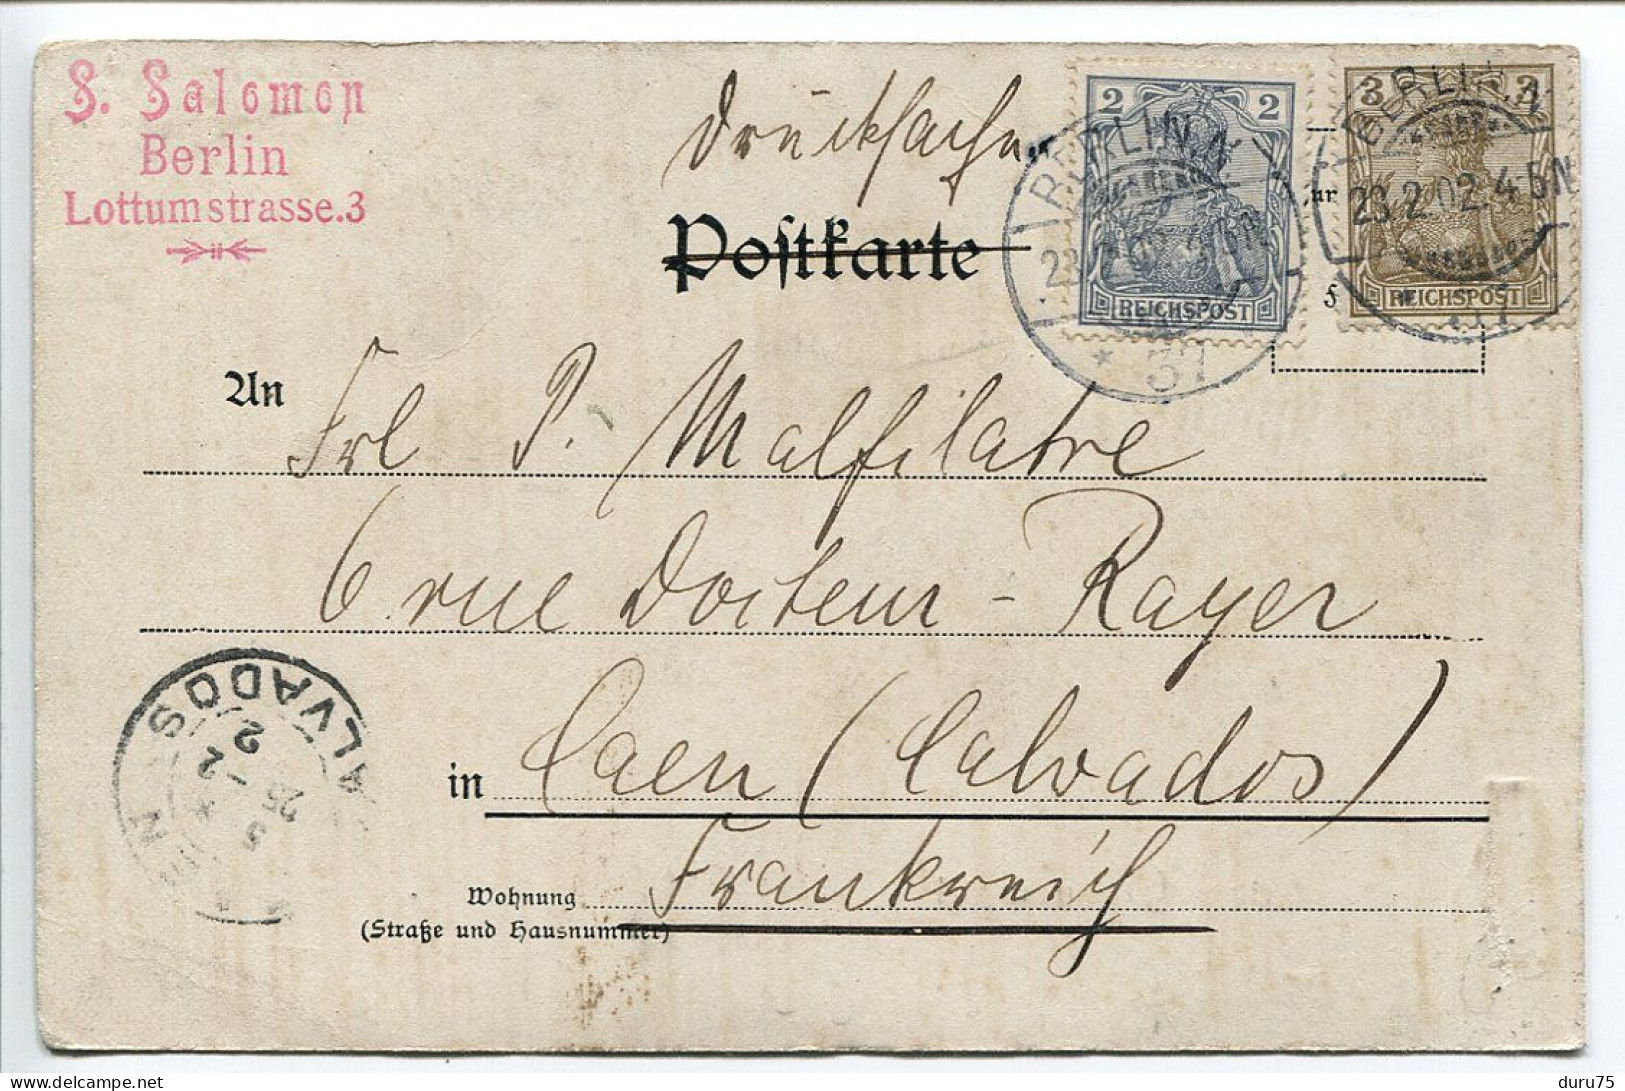 S. Salomon
Berlin
Lottumstrasse.3
Drucksache
Postkarte
2 2
REICHSPOST
BERLIN.N.
* 37
3 3
REICHSPOST
BERLIN.N.
23.2.02.4-5N
ur
5
An
Frl P. Malfilatre
6 rue Docteur-Rayer
in Caen (Calvados)
Frankreich
Wohnung
(Straße und Hausnummer)
CALVADOS
25 -2
duru75